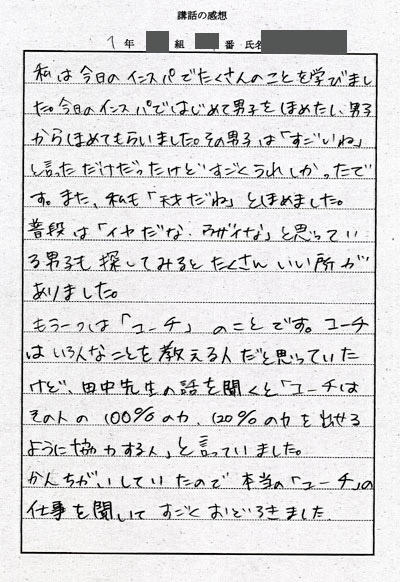 講話の感想
1年 組 番 氏名
私は今日のインスパでたくさんのことを学びまし
た。今日のインスパではじめて男子をほめたし、男子
からほめてもらいました。その男子は「すごいね」
し言っただけだったけどすごくうれしかったで
す。また、私も「天才だね」とほめました。
普段は「イヤだな、ウザイな」と思ってい
る男子も探してみるとたくさんいい所が
ありました。
もう一つは「コーチ」のことです。コーチ
はいろんなことを教える人だと思っていた
けど、田中先生の話を聞くと「コーチは
その人の100%の力、120%の力を出せる
ように協力する人」と言っていました。
かんちがいしていたので本当の「コーチ」の
仕事を聞いてすごくおどろきました。